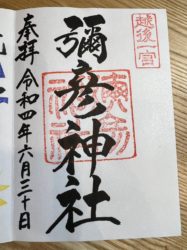 越後一宮
彌彦神社
奉拝 令和四年六月三十日